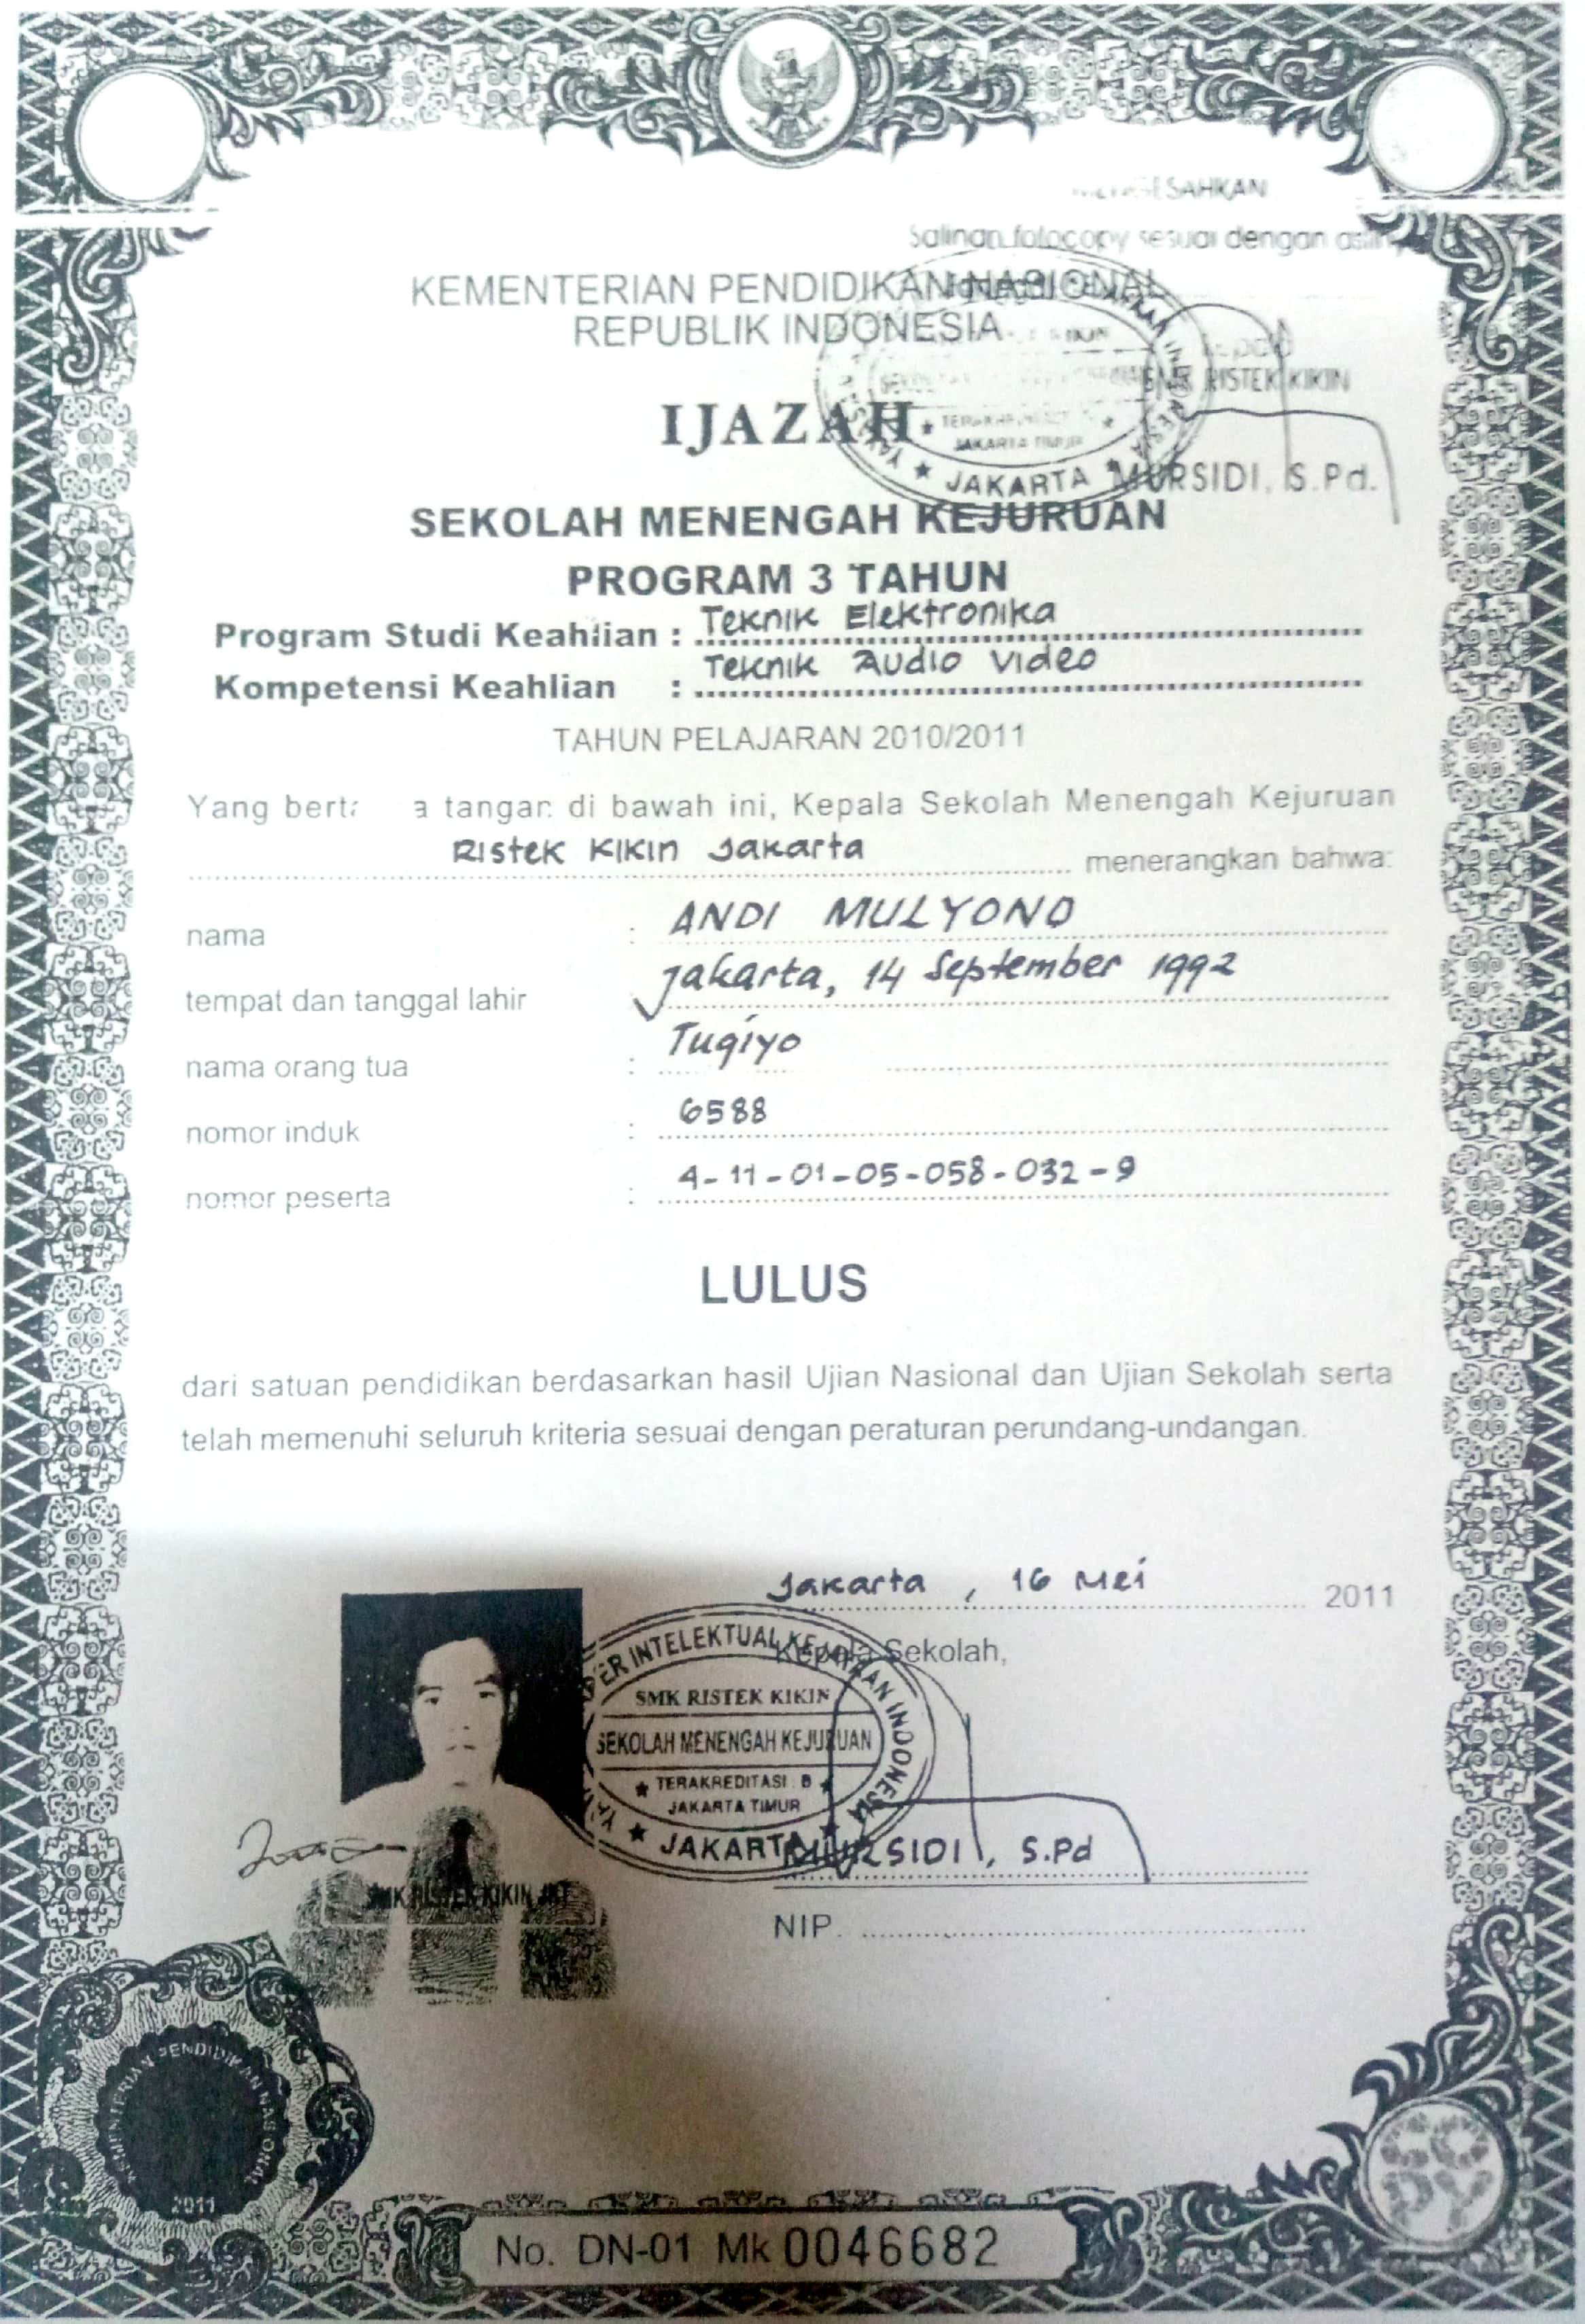 MENGESAHKAN
Salinan fotocopy sesuai dengan
KEMENTERIAN PENDIDIKAN NASIONAL
REPUBLIK INDONESIA
SMK RISTEK KIKIN
IJAZAH
JAKARTA TIMUR
JAKARTA
MURSIDI, S.Pd.
SEKOLAH MENENGAH KEJURUAN
PROGRAM 3 TAHUN
Program Studi Keahlian : Teknik Elektronika
Kompetensi Keahlian : Teknik Audio Video
TAHUN PELAJARAN 2010/2011
Yang berta a tangan di bawah ini, Kepala Sekolah Menengah Kejuruan
Ristek Kikin Jakarta menerangkan bahwa:
nama : ANDI MULYONO
tempat dan tanggal lahir : Jakarta, 14 September 1992
nama orang tua : Tugiyo
nomor induk : 6588
nomor peserta : 4-11-01-05-058-032-9
LULUS
dari satuan pendidikan berdasarkan hasil Ujian Nasional dan Ujian Sekolah serta
telah memenuhi seluruh kriteria sesuai dengan peraturan perundang-undangan.
Jakarta, 16 Mei 2011
Kepala Sekolah,
INTELEKTUAL INDONESIA
SMK RISTEK KIKIN
SEKOLAH MENENGAH KEJURUAN
TERAKREDITASI B
JAKARTA TIMUR
JAKARTA
MURSIDI, S.Pd
SMK RISTEK KIKIN JKT
NIP.
KEMENTERIAN PENDIDIKAN NASIONAL
2011
No. DN-01 Mk 0046682